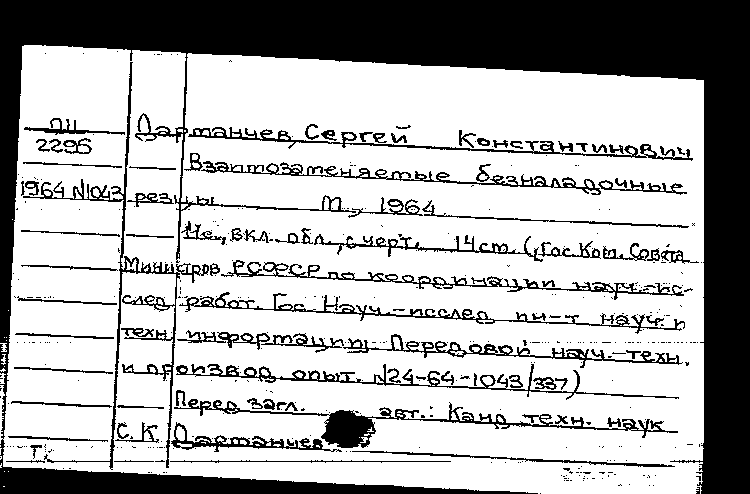 ПЧ Дартанцев, Сергей Константинович
2296
Взаимозаменяемые безналадочные
1964 N1043 резцы М., 1964
11с., вкл. обл., с черт. 14см. (Гос. Ком. Совета
Министров РСФСР по координации науч.-ис-
след работ. Гос Науч.-исслед ин-т науч. и
техн информации. Передовой науч.-техн.
и производ. опыт. N24-64-1043/337)
Перед загл. авт.: Канд техн. наук
С. К. Дартанцев
Тк